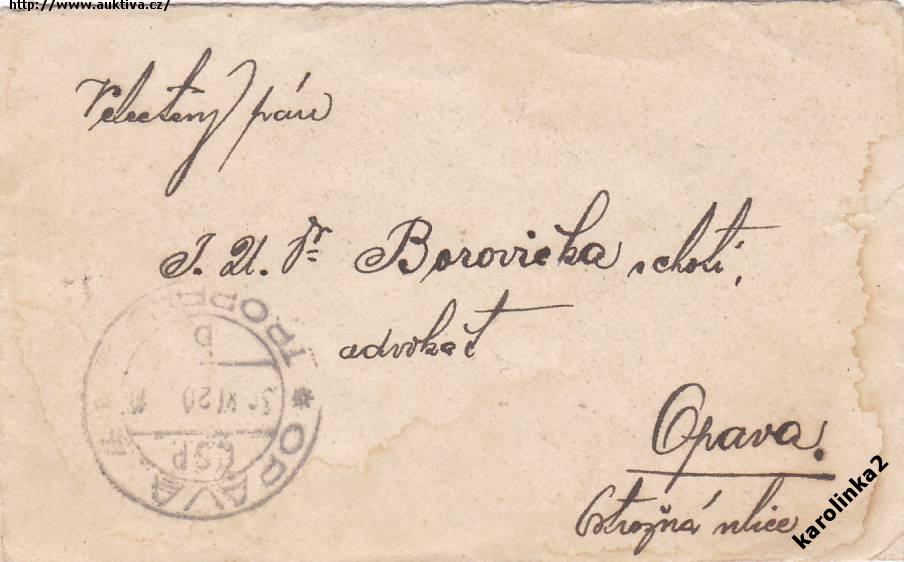 http://www.auktiva.cz/
Velectěný pán
J. U. Dr Borovička s chotí,
advokát
Opava.
Ostrožná ulice
OPAVA * TROPP
b
XI 20
ČSP
karolinka2